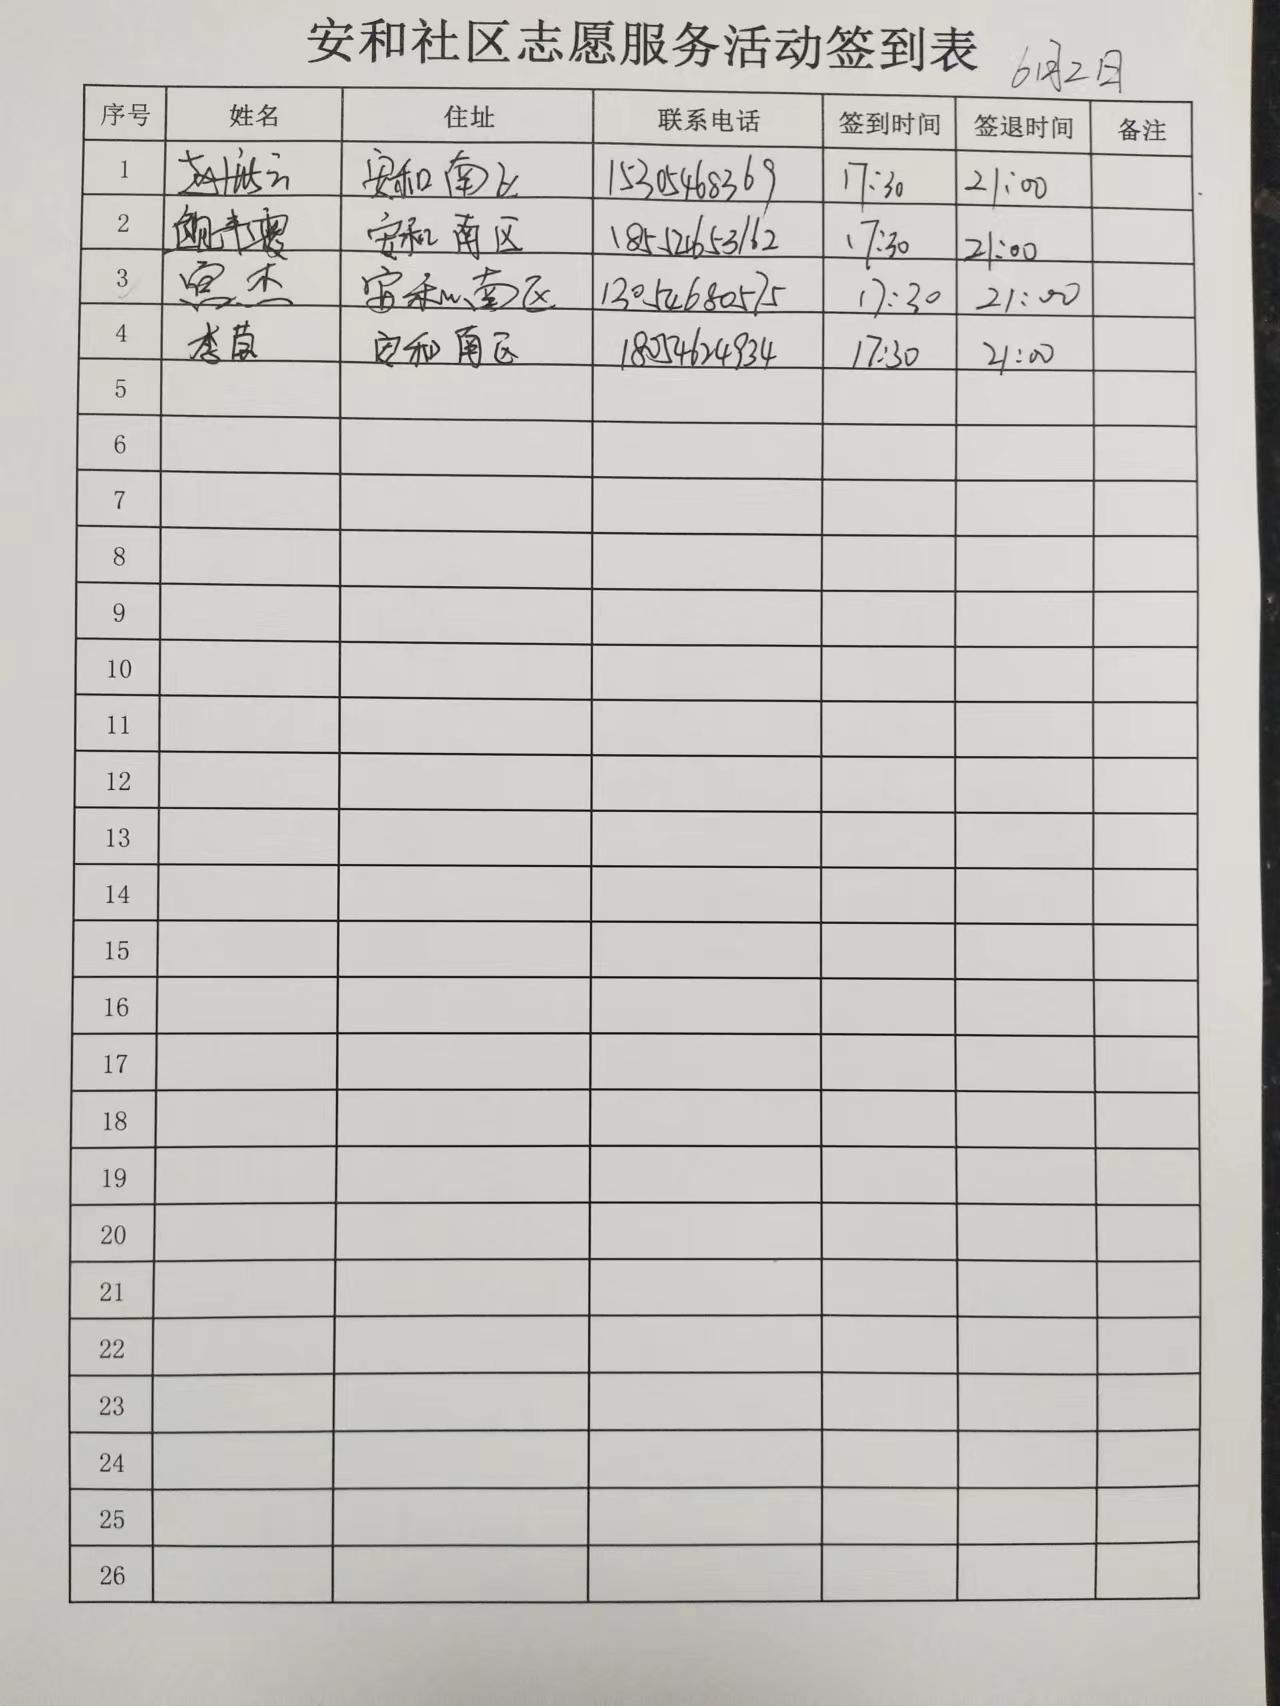 安和社区志愿服务活动签到表 6月2日
序号 姓名 住址 联系电话 签到时间 签退时间 备注
1 安和南区 15305468369 17:30 21:00
2 安和南区 185524653162 17:30 21:00
3 宫杰 安和南区 13054680575 17:30 21:00
4 李茵 安和南区 18054624934 17:30 21:00
5
6
7
8
9
10
11
12
13
14
15
16
17
18
19
20
21
22
23
24
25
26